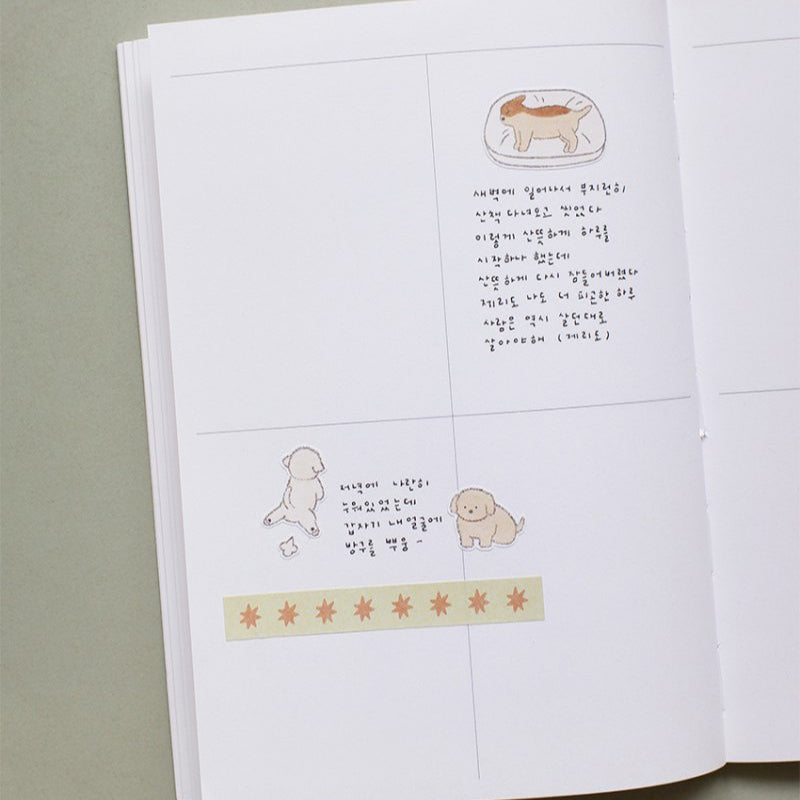 새벽에 일어나서 부지런히
산책 다녀오고 씻었다
이렇게 산뜻하게 하루를
시작하나 했는데
산뜻하게 다시 잠들어버렸다
제리도 나도 너 피곤한 하루
사람은 역시 살던대로
살아야해 (제리도)
저녁에 나란히
누워있었는데
갑자기 내 얼굴에
방구를 뿌웅~